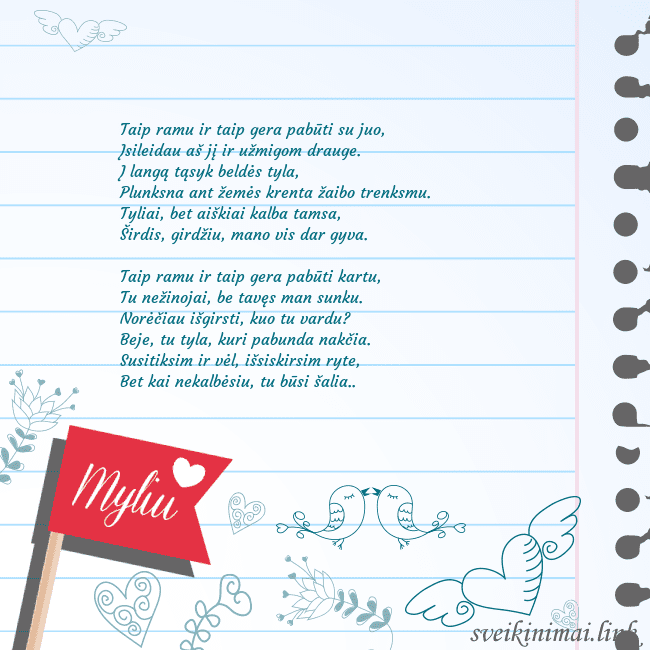 Taip ramu ir taip gera pabūti su juo,
Įsileidau aš jį ir užmigom drauge.
Į langą tąsyk beldės tyla,
Plunksna ant žemės krenta žaibo trenksmu.
Tyliai, bet aiškiai kalba tamsa,
Širdis, girdžiu, mano vis dar gyva.

Taip ramu ir taip gera pabūti kartu,
Tu nežinojai, be tavęs man sunku.
Norėčiau išgirsti, kuo tu vardu?
Beje, tu tyla, kuri pabunda nakčia.
Susitiksim ir vėl, išsiskirsim ryte,
Bet kai nekalbėsiu, tu būsi šalia..
Myliu
sveikinimai.link